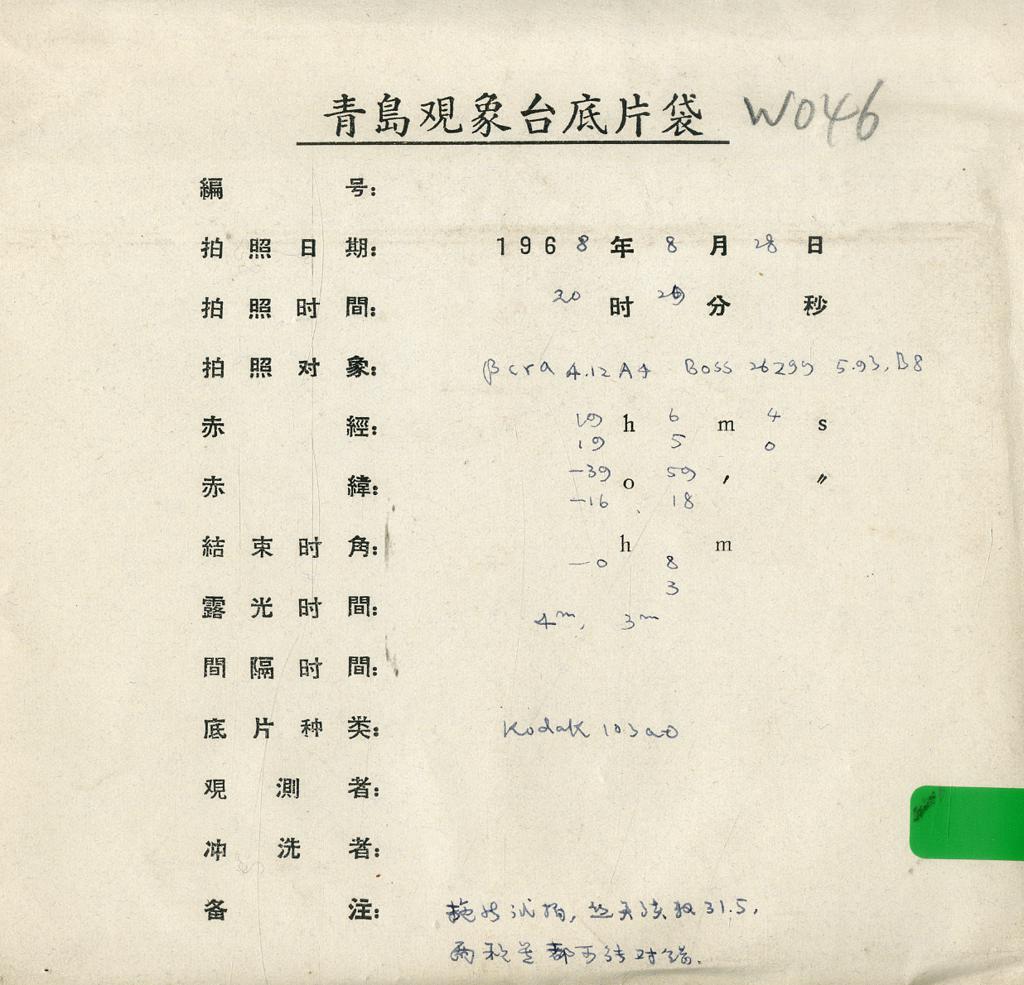 青島观象台底片袋 W046
編号:
拍照日期: 1968年8月28日
拍照时間: 20时 分 秒
拍照对象: βcra 4.12 A4 Boss 26299 5.93, B8
赤經: 19h 6m 4s
19 5 0
赤緯: -39° 59′ ″
-16 18
結束时角: h m
-0 8
3
露光时間: 4m, 3m
間隔时間:
底片种类: Kodak 103a0
观測者:
冲洗者:
备注: 试拍, 31.5,
两 都可